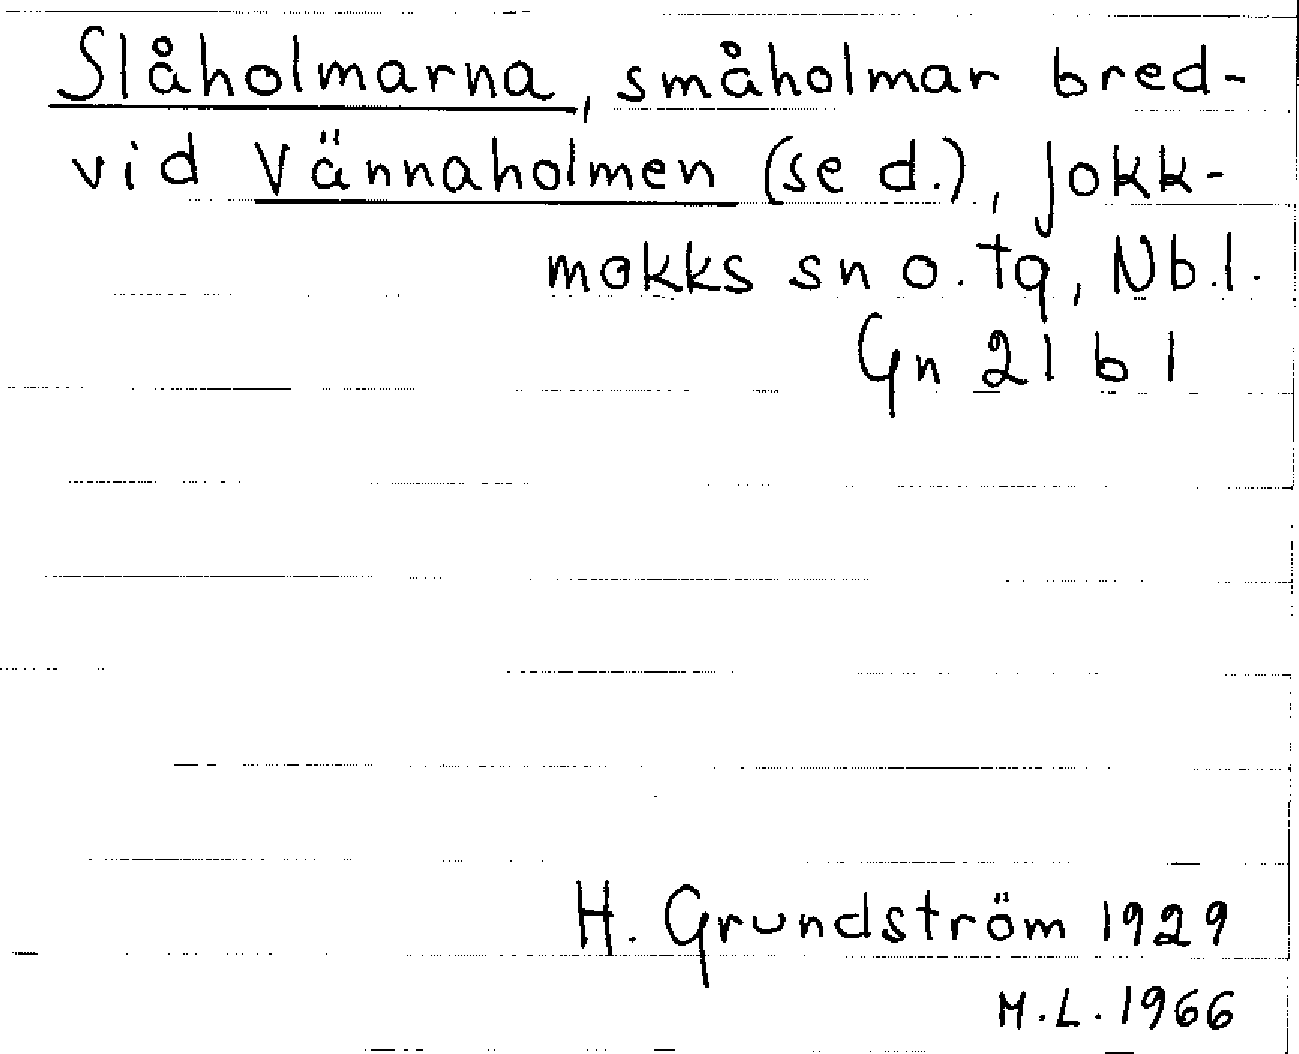 Slåholmarna, småholmar bred-
vid Vännaholmen (se d.), Jokk-
mokks sn o. tg, Nb.l.
Gn 21 b 1
H. Grundström 1929
M.L. 1966